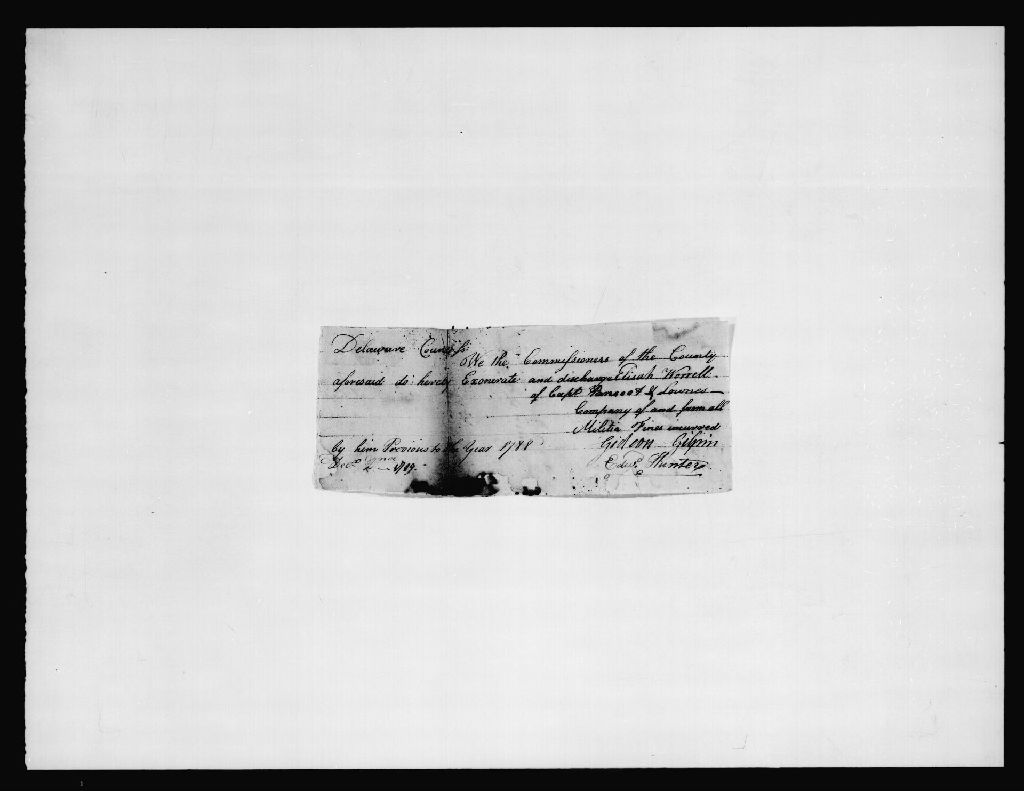 Delaware County Ss
We the Commissioners of the County
aforesaid do hereby Exonerate and discharge Elisah Worrell
of Capt. & Lownes
Company of and from all
Militia Fines incurred
by him Previous to the Year 1788 Gideon Gilpin
Decr. 1789 Edwd. Hunter